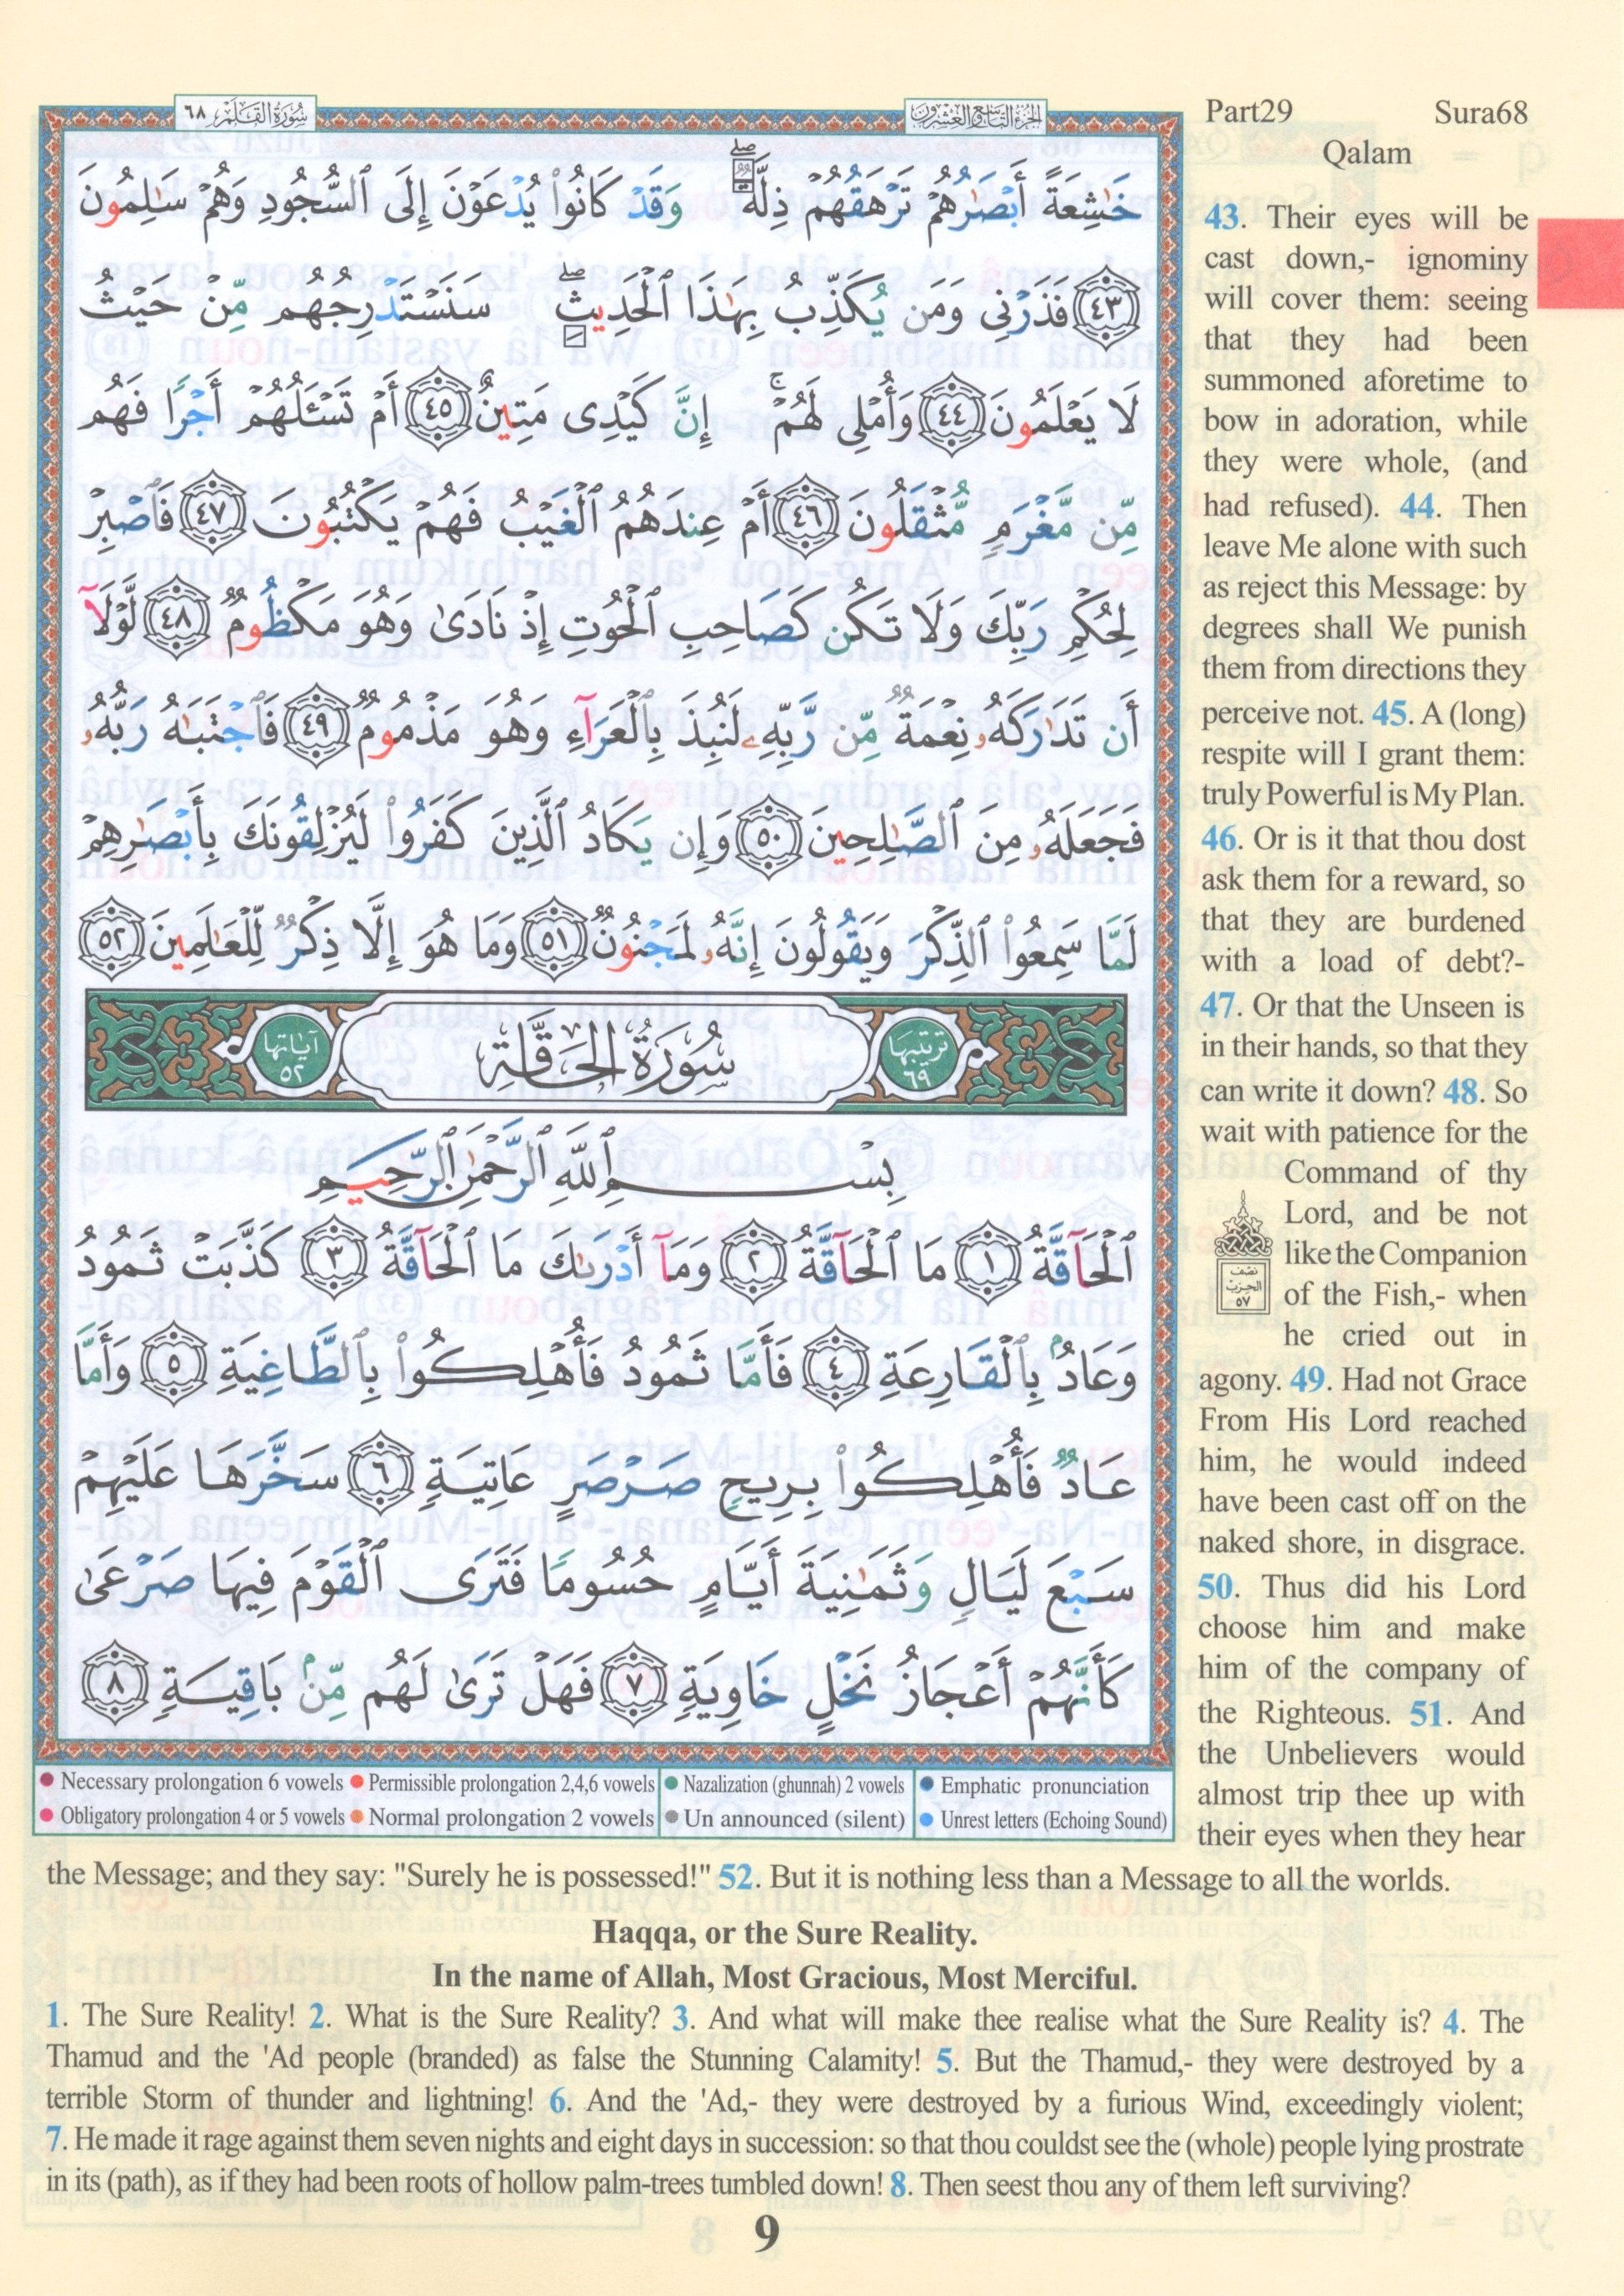 سُورَةُ القَلَم ٦٨
الجزء التاسع والعشرون
خَٰشِعَةً أَبۡصَٰرُهُمۡ تَرۡهَقُهُمۡ ذِلَّةٞۖ وَقَدۡ كَانُواْ يُدۡعَوۡنَ إِلَى ٱلسُّجُودِ وَهُمۡ سَٰلِمُونَ
٤٣ فَذَرۡنِي وَمَن يُكَذِّبُ بِهَٰذَا ٱلۡحَدِيثِۖ سَنَسۡتَدۡرِجُهُم مِّنۡ حَيۡثُ
لَا يَعۡلَمُونَ ٤٤ وَأُمۡلِي لَهُمۡۚ إِنَّ كَيۡدِي مَتِينٌ ٤٥ أَمۡ تَسۡـَٔلُهُمۡ أَجۡرٗا فَهُم
مِّن مَّغۡرَمٖ مُّثۡقَلُونَ ٤٦ أَمۡ عِندَهُمُ ٱلۡغَيۡبُ فَهُمۡ يَكۡتُبُونَ ٤٧ فَٱصۡبِرۡ
لِحُكۡمِ رَبِّكَ وَلَا تَكُن كَصَاحِبِ ٱلۡحُوتِ إِذۡ نَادَىٰ وَهُوَ مَكۡظُومٞ ٤٨ لَّوۡلَآ
أَن تَدَٰرَكَهُۥ نِعۡمَةٞ مِّن رَّبِّهِۦ لَنُبِذَ بِٱلۡعَرَآءِ وَهُوَ مَذۡمُومٞ ٤٩ فَٱجۡتَبَٰهُ رَبُّهُۥ
فَجَعَلَهُۥ مِنَ ٱلصَّٰلِحِينَ ٥٠ وَإِن يَكَادُ ٱلَّذِينَ كَفَرُواْ لَيُزۡلِقُونَكَ بِأَبۡصَٰرِهِمۡ
لَمَّا سَمِعُواْ ٱلذِّكۡرَ وَيَقُولُونَ إِنَّهُۥ لَمَجۡنُونٞ ٥١ وَمَا هُوَ إِلَّا ذِكۡرٞ لِّلۡعَٰلَمِينَ ٥٢
ترتيبها ٦٩ سُورَةُ الحَاقَّةِ آياتها ٥٢
بِسۡمِ ٱللَّهِ ٱلرَّحۡمَٰنِ ٱلرَّحِيمِ
ٱلۡحَآقَّةُ ١ مَا ٱلۡحَآقَّةُ ٢ وَمَآ أَدۡرَىٰكَ مَا ٱلۡحَآقَّةُ ٣ كَذَّبَتۡ ثَمُودُ
وَعَادُۢ بِٱلۡقَارِعَةِ ٤ فَأَمَّا ثَمُودُ فَأُهۡلِكُواْ بِٱلطَّاغِيَةِ ٥ وَأَمَّا
عَادٞ فَأُهۡلِكُواْ بِرِيحٖ صَرۡصَرٍ عَاتِيَةٖ ٦ سَخَّرَهَا عَلَيۡهِمۡ
سَبۡعَ لَيَالٖ وَثَمَٰنِيَةَ أَيَّامٍ حُسُومٗا فَتَرَى ٱلۡقَوۡمَ فِيهَا صَرۡعَىٰ
كَأَنَّهُمۡ أَعۡجَازُ نَخۡلٍ خَاوِيَةٖ ٧ فَهَلۡ تَرَىٰ لَهُم مِّنۢ بَاقِيَةٖ ٨
Necessary prolongation 6 vowels Permissible prolongation 2,4,6 vowels Nazalization (ghunnah) 2 vowels Emphatic pronunciation
Obligatory prolongation 4 or 5 vowels Normal prolongation 2 vowels Un announced (silent) Unrest letters (Echoing Sound)
Part29 Sura68
Qalam
43. Their eyes will be
cast down,- ignominy
will cover them: seeing
that they had been
summoned aforetime to
bow in adoration, while
they were whole, (and
had refused). 44. Then
leave Me alone with such
as reject this Message: by
degrees shall We punish
them from directions they
perceive not. 45. A (long)
respite will I grant them:
truly Powerful is My Plan.
46. Or is it that thou dost
ask them for a reward, so
that they are burdened
with a load of debt?-
47. Or that the Unseen is
in their hands, so that they
can write it down? 48. So
wait with patience for the
Command of thy
Lord, and be not
like the Companion
of the Fish,- when
he cried out in
نصف
الحزب
٥٧
agony. 49. Had not Grace
From His Lord reached
him, he would indeed
have been cast off on the
naked shore, in disgrace.
50. Thus did his Lord
choose him and make
him of the company of
the Righteous. 51. And
the Unbelievers would
almost trip thee up with
their eyes when they hear
the Message; and they say: "Surely he is possessed!" 52. But it is nothing less than a Message to all the worlds.
Haqqa, or the Sure Reality.
In the name of Allah, Most Gracious, Most Merciful.
1. The Sure Reality! 2. What is the Sure Reality? 3. And what will make thee realise what the Sure Reality is? 4. The
Thamud and the 'Ad people (branded) as false the Stunning Calamity! 5. But the Thamud,- they were destroyed by a
terrible Storm of thunder and lightning! 6. And the 'Ad,- they were destroyed by a furious Wind, exceedingly violent;
7. He made it rage against them seven nights and eight days in succession: so that thou couldst see the (whole) people lying prostrate
in its (path), as if they had been roots of hollow palm-trees tumbled down! 8. Then seest thou any of them left surviving?
9